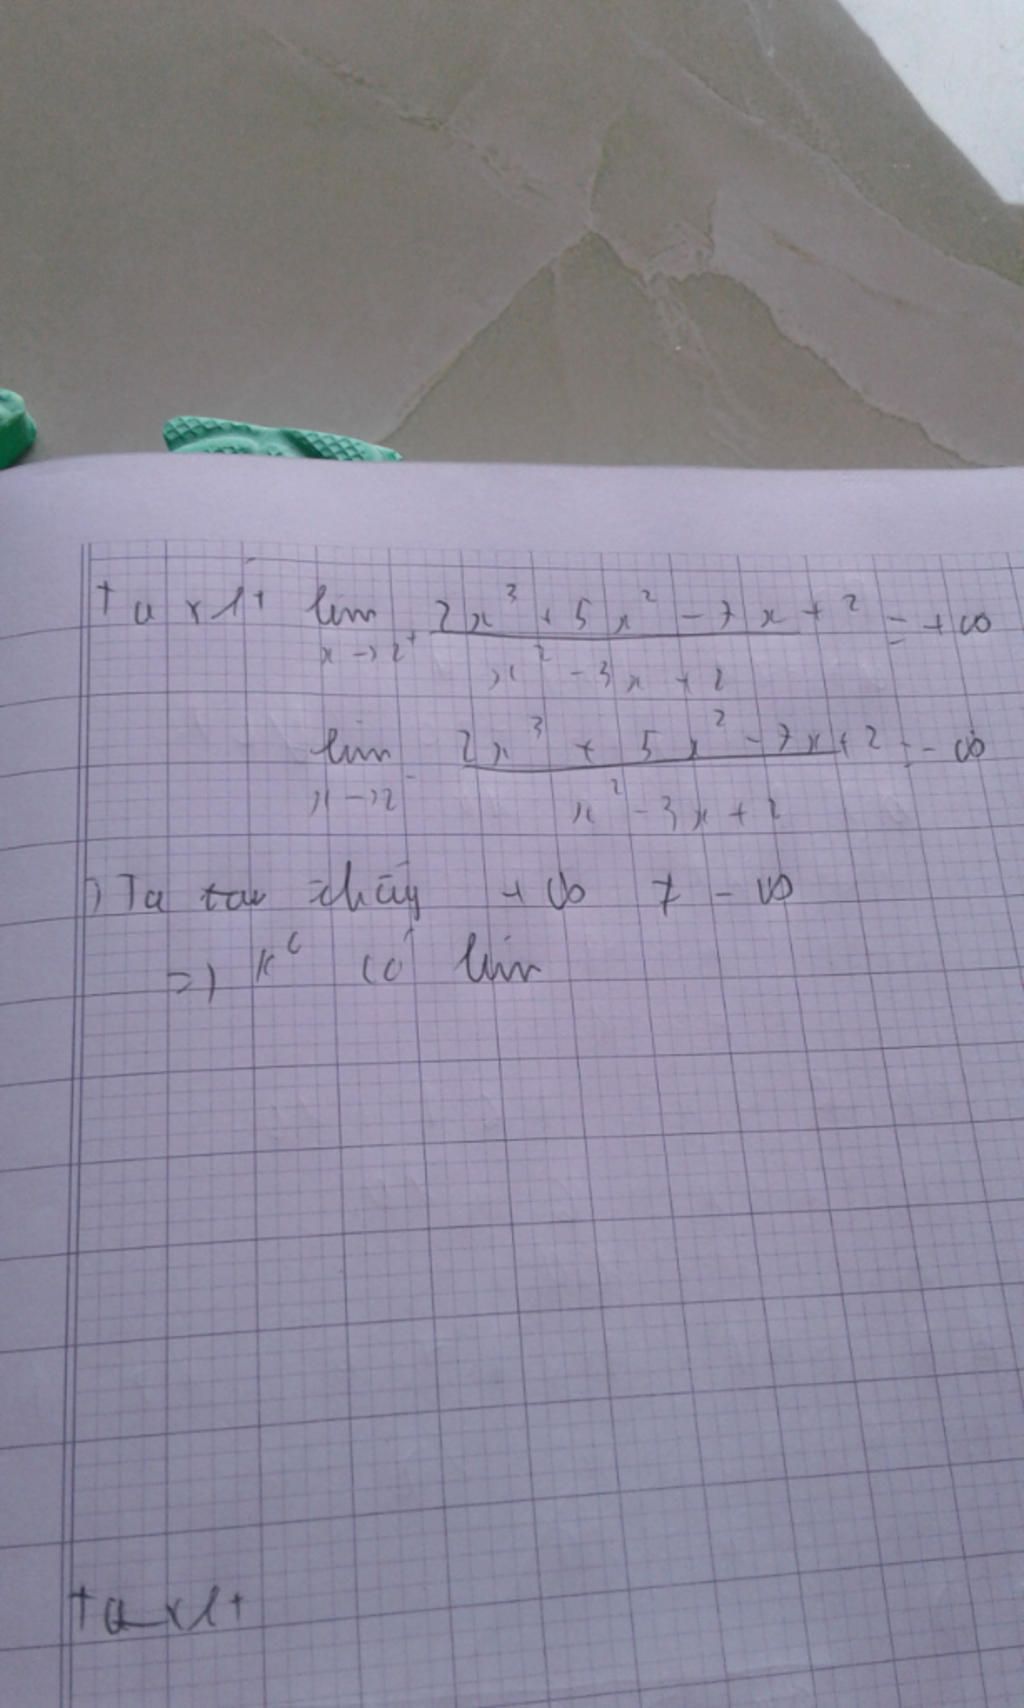 Ta xét lim 2x³ + 5x² - 7x + 2 = +∞
x → 2⁺ x² - 3x + 2
lim 2x³ + 5x² - 7x + 2 = -∞
x → 2⁻ x² - 3x + 2
Ta thấy +∞ ≠ -∞
=) K⁰ có lim
Ta xét